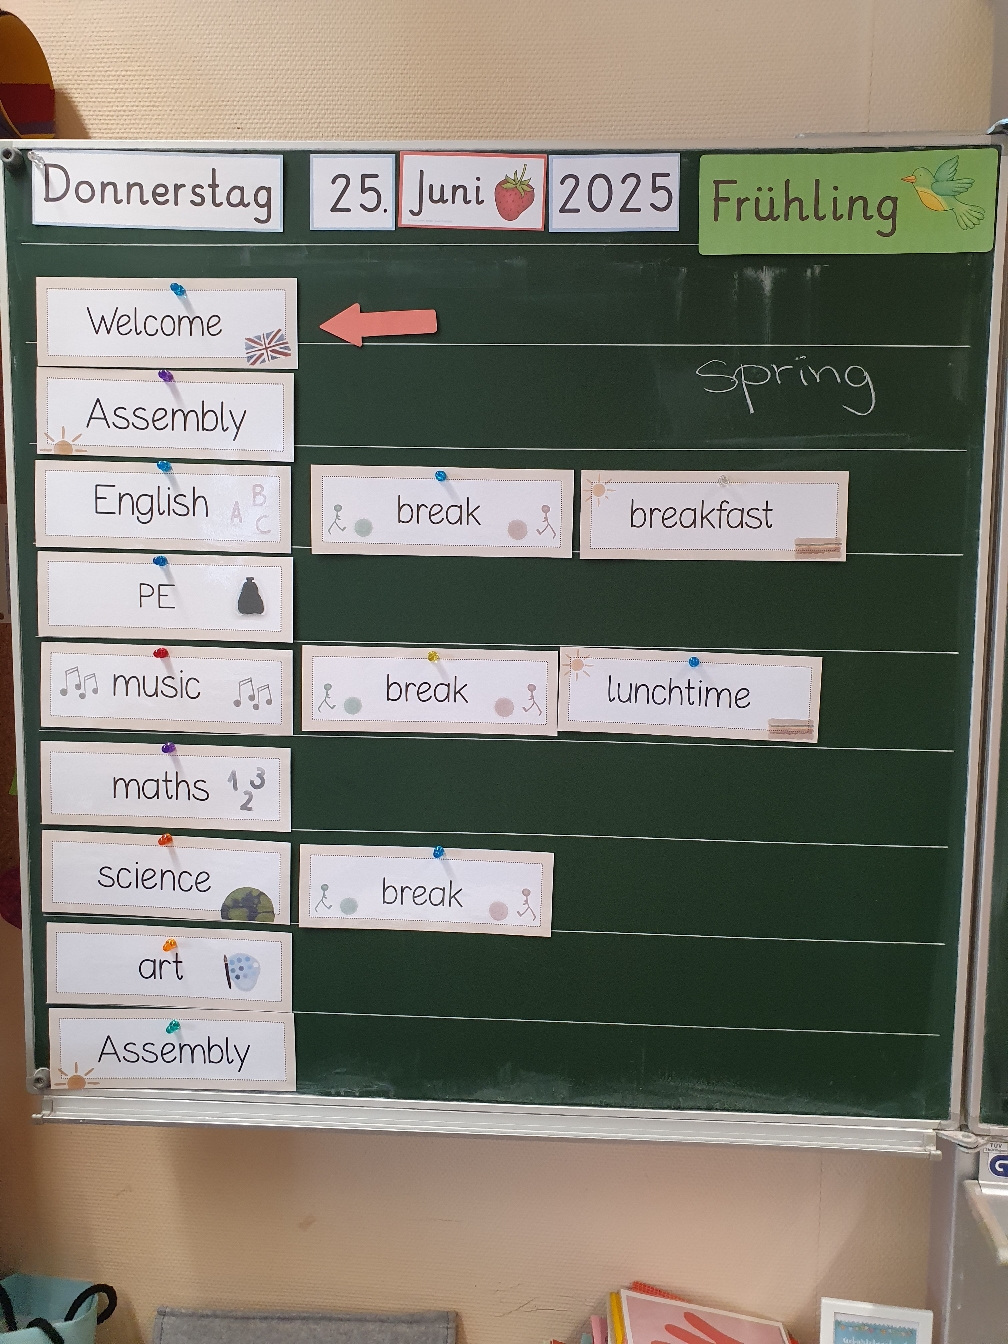 Donnerstag 25. Juni 2025 Frühling
Welcome
spring
Assembly
English A B C break breakfast
PE
music break lunchtime
maths 1 2 3
science break
art
Assembly